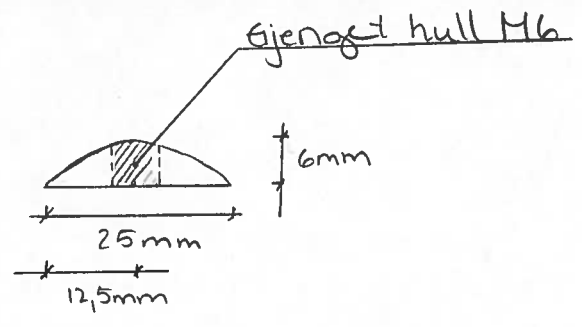 Gjenget hull M6
6mm
25mm
12,5mm